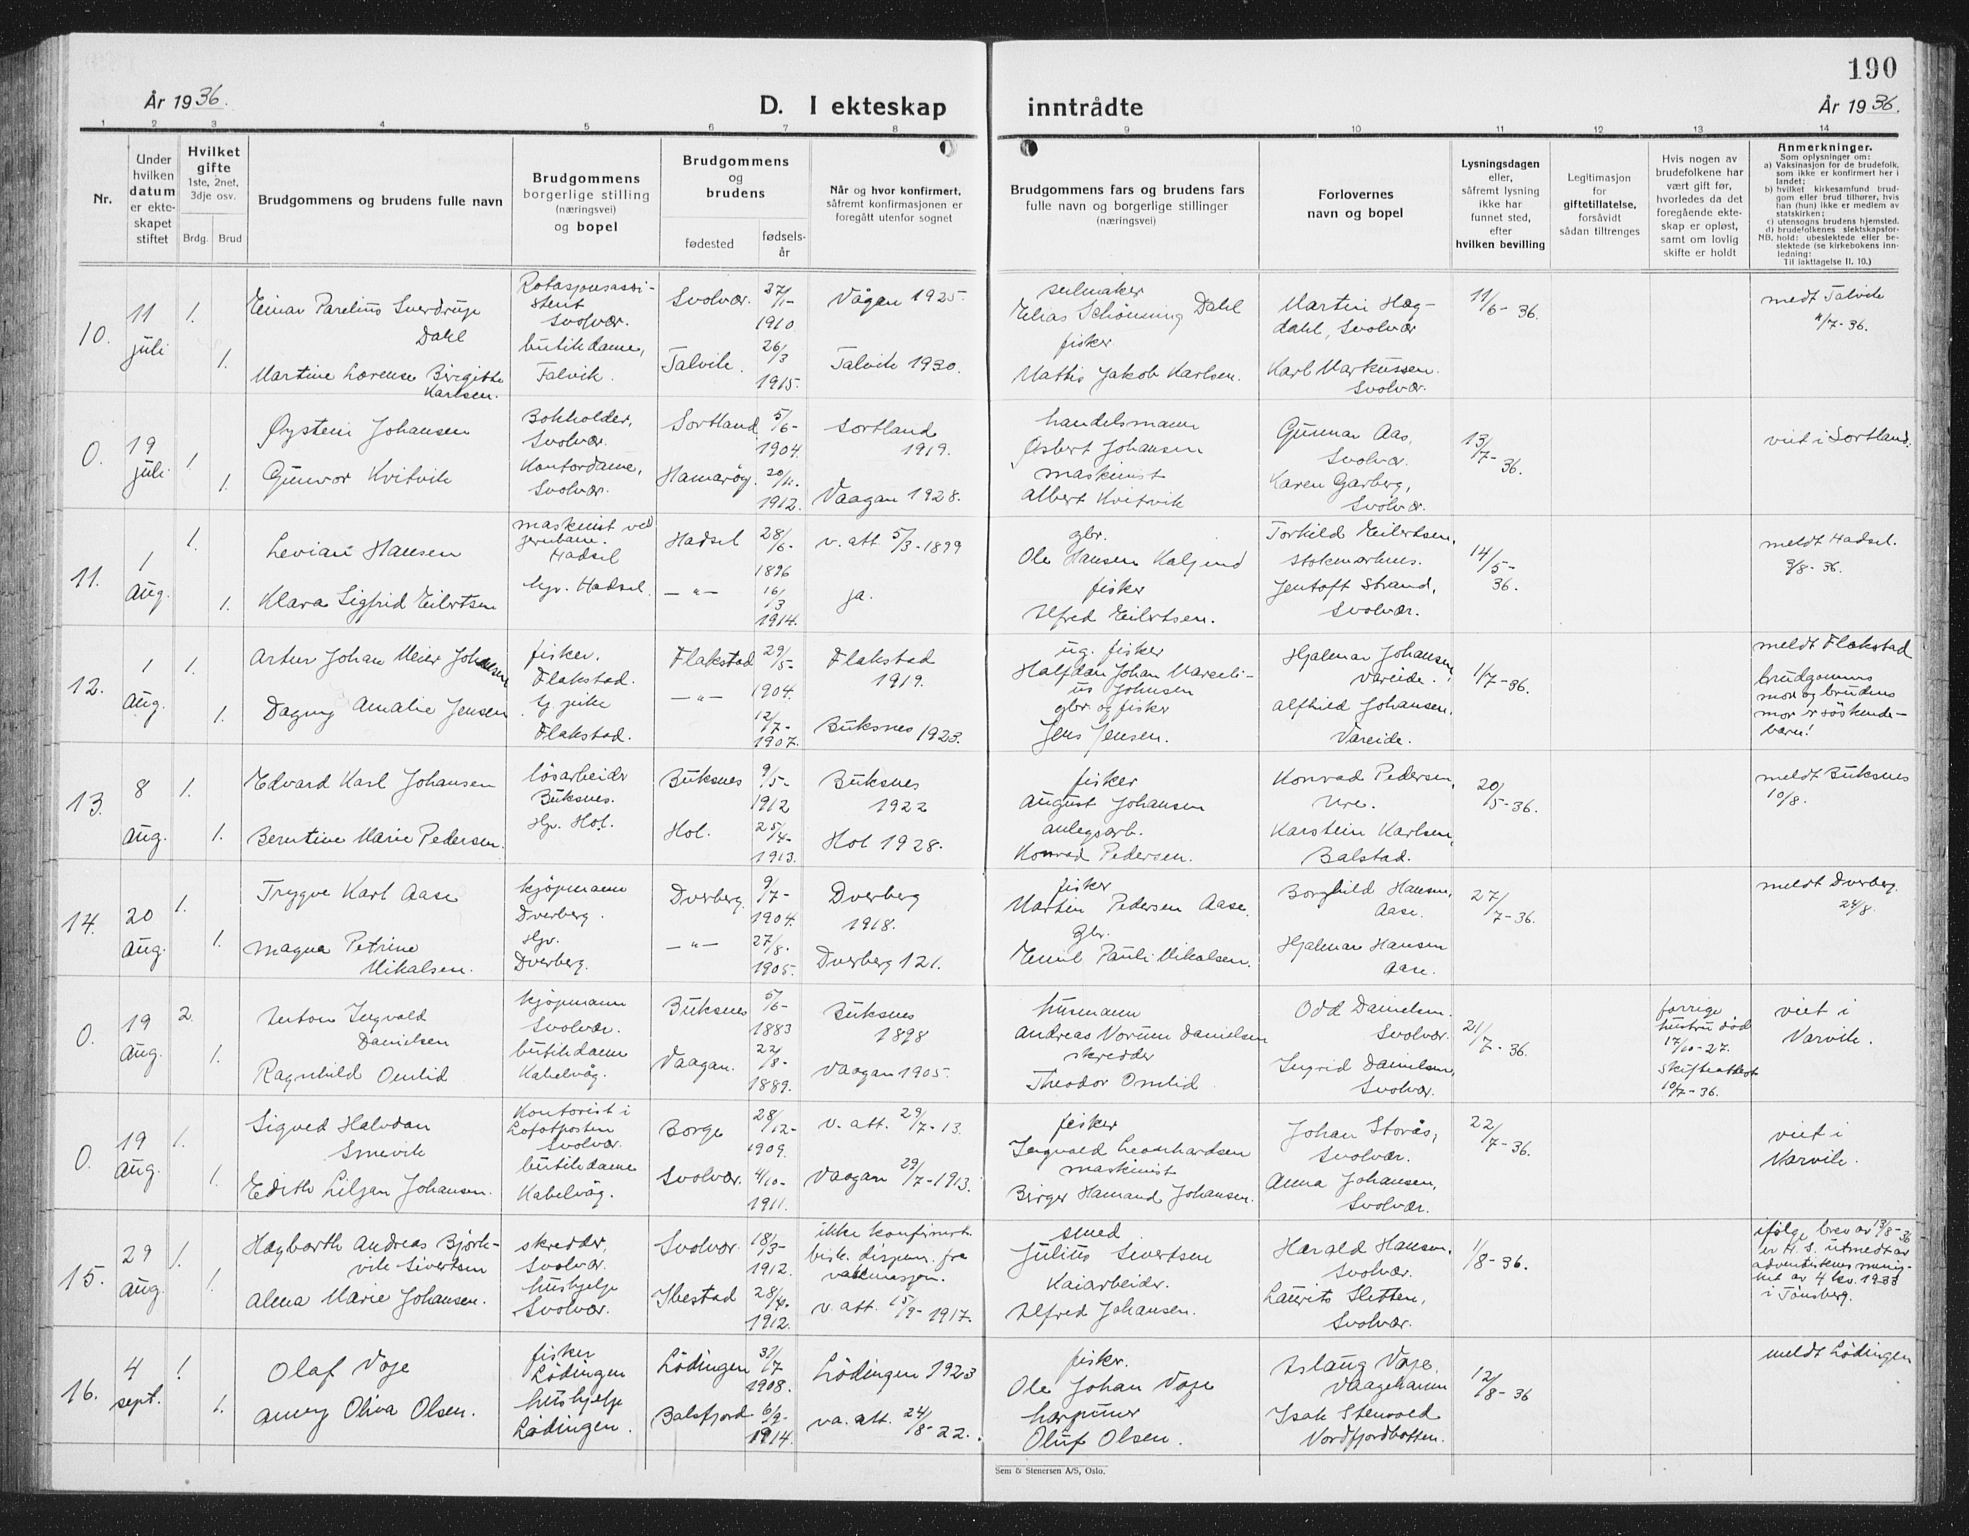 190
År 1936.
D. I ekteskap inntrådte
År 1936.
1 2 3 4 5 6 7 8 9 10 11 12 13 14
Nr.
Under hvilken datum er ekteskapet stiftet
Hvilket gifte
1ste, 2net, 3dje osv.
Brdg. Brud
Brudgommens og brudens fulle navn
Brudgommens borgerlige stilling (næringsvei) og bopel
Brudgommens og brudens
fødested
fødselsår
Når og hvor konfirmert, såfremt konfirmasjonen er foregått utenfor sognet
Brudgommens fars og brudens fars fulle navn og borgerlige stillinger (næringsvei)
Forlovernes navn og bopel
Lysningsdagen eller, såfremt lysning ikke har funnet sted, efter hvilken bevilling
Legitimasjon for giftetillatelse, forsåvidt sådan tiltrenges
Hvis nogen av brudefolkene har vært gift før, hvorledes da det foregående ekteskap er opløst, samt om lovlig skifte er holdt
Anmerkninger.
Som oplysninger om:
a) Vaksinasjon for de brudefolk, som ikke er konfirmert her i landet;
b) hvilket kirkesamfund brudgom eller brud tilhører, hvis han (hun) ikke er medlem av statskirken;
c) utensogns brudens hjemsted.
d) brudefolkenes slektskapsforhold: ubeslektede eller beslektede (se kirkebokens innledning:
NB. Til iakttagelse II. 10.)
10. 11 juli 1. 1.
Einar Parelius Sverdrup Dahl
Rotasjonsassistent Svolvær.
Svolvær. 27/1- 1910.
Vågan 1925.
seilmaker
Elias Schönning Dahl
Martin Hegdahl, Svolvær
11/6-36.
medt Talvik 11/7-36.
Martine Lorense Birgitte Karlsen.
butikdame, Talvik.
Talvik. 26/3 1915.
Talvik 1930.
fisker
Mathis Jakob Karlsen.
Karl Markussen. Svolvær
0. 19 juli 1. 1.
Øystein Johansen
Bokholder, Svolvær.
Sortland 5/6- 1904.
Sortland 1919.
handelsmann
Osbert Johansen
Gunnar Aas, Svolvær.
13/7-36.
viet i Sortland.
Gunvor Kvitvik
Kontordame, Svolvær.
Hamarøy 1912.
Vaagan 1928.
maskinist
Albert Kvitvik
Karen Garberg, Svolvær.
11. 1 Aug. 1. 1.
Levian Hansen
maskinist ved jernbane. Hadsel
Hadsel 28/6- 1896
v. att. 5/3-1899
gbr.
Ole Hansen
Torkild Eilertsen, Stokmarknes.
14/5-36.
meldt Hadsel. 9/8-36.
Klara Sigfrid Eilertsen
hjv. Hadsel.
— " — 16/3 1914.
ja.
fisker
Alfred Eilertsen.
Jentoft Strand, Svolvær.
12. 1 Aug. 1. 1.
Artur Johan Meier Johansen
fisker. Flakstad.
Flakstad 29/5- 1904.
Flakstad 1919.
ug. fisker
Halfdan Johan Marcelius Johnsen
Hjalmar Johansen Vareide.
1/7-36.
meldt Flakstad
brudgommens mor og brudens mor er söskendebarn!
Dagny Amalie Jensen
Flakstad.
— " — 12/7- 1907.
Buksnes 1923.
gbr og fisker
Jens Jensen.
Alfhild Johansen. Vareide.
13. 8 Aug. 1. 1.
Edvard Karl Johansen
løsarbeider Buksnes.
Buksnes 9/5- 1912
Buksnes 1922
fisker
August Johansen
Konrad Pedersen, Ure.
20/5-36.
meldt Buksnes 10/8.
Berntine Marie Pedersen.
Hjv. Hol.
Hol. 25/4- 1913.
Hol 1928.
anlegsarb.
Konrad Pedersen.
Karstein Karlsen, Balstad.
14. 20 Aug. 1. 1.
Trygve Karl Aase
kjøpmann Dverberg.
Dverberg. 9/7- 1904.
Dverberg 1918.
fisker
Martin Pedersen Aase.
Borghild Hansen, Aase.
27/7-36.
meldt Dverberg. 24/8.
Magna Petrine Mikalsen.
Hjv. Dverberg.
— " — 27/8. 1905.
Dverberg 121.
gbr.
Emil Pauli Mikalsen.
Hjalmar Hansen Aase.
0. 19 Aug. 2. 1.
Anton Ingvald Danielsen
kjøpmann Svolvær.
Buksnes 5/6- 1883
Buksnes 1898
husmann
Andreas Norum Danielsen
Odd Danielsen. Svolvær.
21/7-36.
forrige hustru død 17/10-27. Skifteattest 10/7-36.
viet i Narvik.
Ragnhild Omlid
butikdame Kabelvåg.
Vaagan. 22/8- 1889.
Vaagan 1905.
skredder
Theodor Omlid
Ingrid Danielsen, Svolvær.
0. 19 Aug. 1. 1.
Sigved Halvdan Smevik
Kontorist i Lofotposten Svolvær.
Borge 28/12- 1909.
v. att. 29/7-13.
fisker
Ingvald Leonhardsen
Johan Storås, Svolvær.
22/7-36.
viet i Narvik.
Edith Liljan Johansen.
butikdame Kabelvåg.
Svolvær. 4/10- 1911.
Vaagan 29/7-1913.
maskinist
Birger Hamand Johansen.
Anna Johansen, Svolvær.
15. 29 Aug. 1. 1.
Hagbarth Andreas Björkvik Sivertsen
skredder, Svolvær.
Svolvær. 18/3- 1912.
ikke konfirmert. bisk. dispen. fra vaksinasjon.
smed
Julius Sivertsen
Harald Hansen, Svolvær.
1/8-36.
ifølge brev av 13/8-36 er H. S. utmeldt av adventistenes menighet av 4 kv. 1933 i Tönsberg.
Alma Marie Johansen.
hushjelp Svolvær.
Ibestad 28/4. 1912.
v. att. 15/9-1917.
Kaiarbeider.
Alfred Johansen.
Laurits Sletten, Svolvær.
16. 4 sept. 1. 1.
Olaf Voje
fisker Lödingen
Lödingen 31/7 1908.
Lödingen 1923
fisker.
Ole Johan Voje
Aslaug Voje, Vaagehamn
12/8-36
meldt Lödingen
Anny Oliva Olsen.
hushjelp Lödingen.
Balsfjord 6/9- 1914.
va. att. 24/8-22.
harpuner
Oluf Olsen.
Isak Stenvold Nordfjordbotten.
Sem & Stenersen A/S, Oslo.